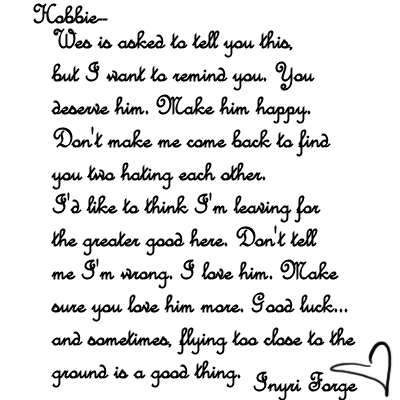 Hobbie--
Wes is asked to tell you this,
but I want to remind you. You
deserve him. Make him happy.
Don't make me come back to find
you two hating each other.
I'd like to think I'm leaving for
the greater good here. Don't tell
me I'm wrong. I love him. Make
sure you love him more. Good luck...
and sometimes, flying too close to the
ground is a good thing.
Inyri Forge